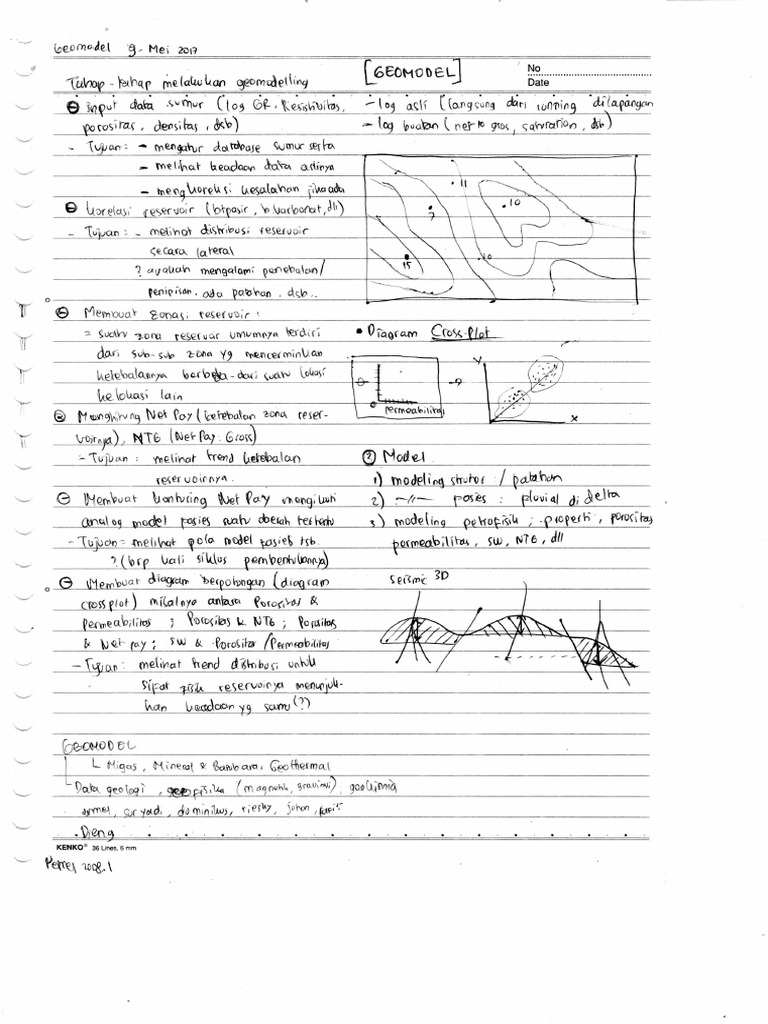 Geomodel 9 - Mei 2017
[GEOMODEL]
No
Date
Tahap - tahap melakukan geomodelling
⊖ input data sumur (log GR, Resistivitas,
porositas, densitas, dsb)
- Tujuan : - mengatur database sumur serta
- melihat keadaan data aslinya
- mengkoreksi kesalahan jika ada
- log asli (langsung dari running dilapangan
- log buatan (net to gros, saturation, dsb)
11
10
7
10
15
⊖ korelasi reservoir (btpasir, b karbonat, dll)
- Tujuan : - melihat distribusi reservoir
secara lateral
? apakah mengalami penebalan/
penipisan. ada patahan. dsb..
⊖ Membuat zonasi reservoir :
= suatu zona reservoar umumnya terdiri
dari sub-sub zona yg mencerminkan
ketebalannya berbeda - dari suatu lokasi
kelokasi lain
⊖ Menghitung Net Pay (ketebalan zona reser-
voirnya), NTG (Net Pay : Gross)
- Tujuan : melihat trend ketebalan
reservoirnya.
⊖ Membuat konturing Net Pay mengikuti
analog model fasies suatu daerah tertentu
- Tujuan = melihat pola model fasies tsb.
? (brp kali siklus pembentukannya)
⊖ Membuat diagram berpotongan (diagram
crossplot) misalnya antara Porositas &
Permeabilitas ; Porositas & NTG ; Porositas
& Net pay ; SW & Porositas / Permeabilitas
- Tujuan : melihat trend distribusi untuk
sifat fisik reservoirnya menunjuk-
kan keadaan yg sama (?)
• Diagram Cross-plot
Permeabilitas
Y
X
② Model
1) modeling struktur / patahan
2) -//- fasies : pluvial di delta
3) modeling petrofisik ; properti, porositas
permeabilitas, SW, NTG, dll
seismic 3D
GEOMODEL
Migas, Mineral & Batubara, Geothermal
Data geologi, geofisika (magnetik, gravitasi), geokimia
suryadi, dominikus, johan,
Dieng
KENKO® 36 Lines, 6 mm
Petrel 2008.1